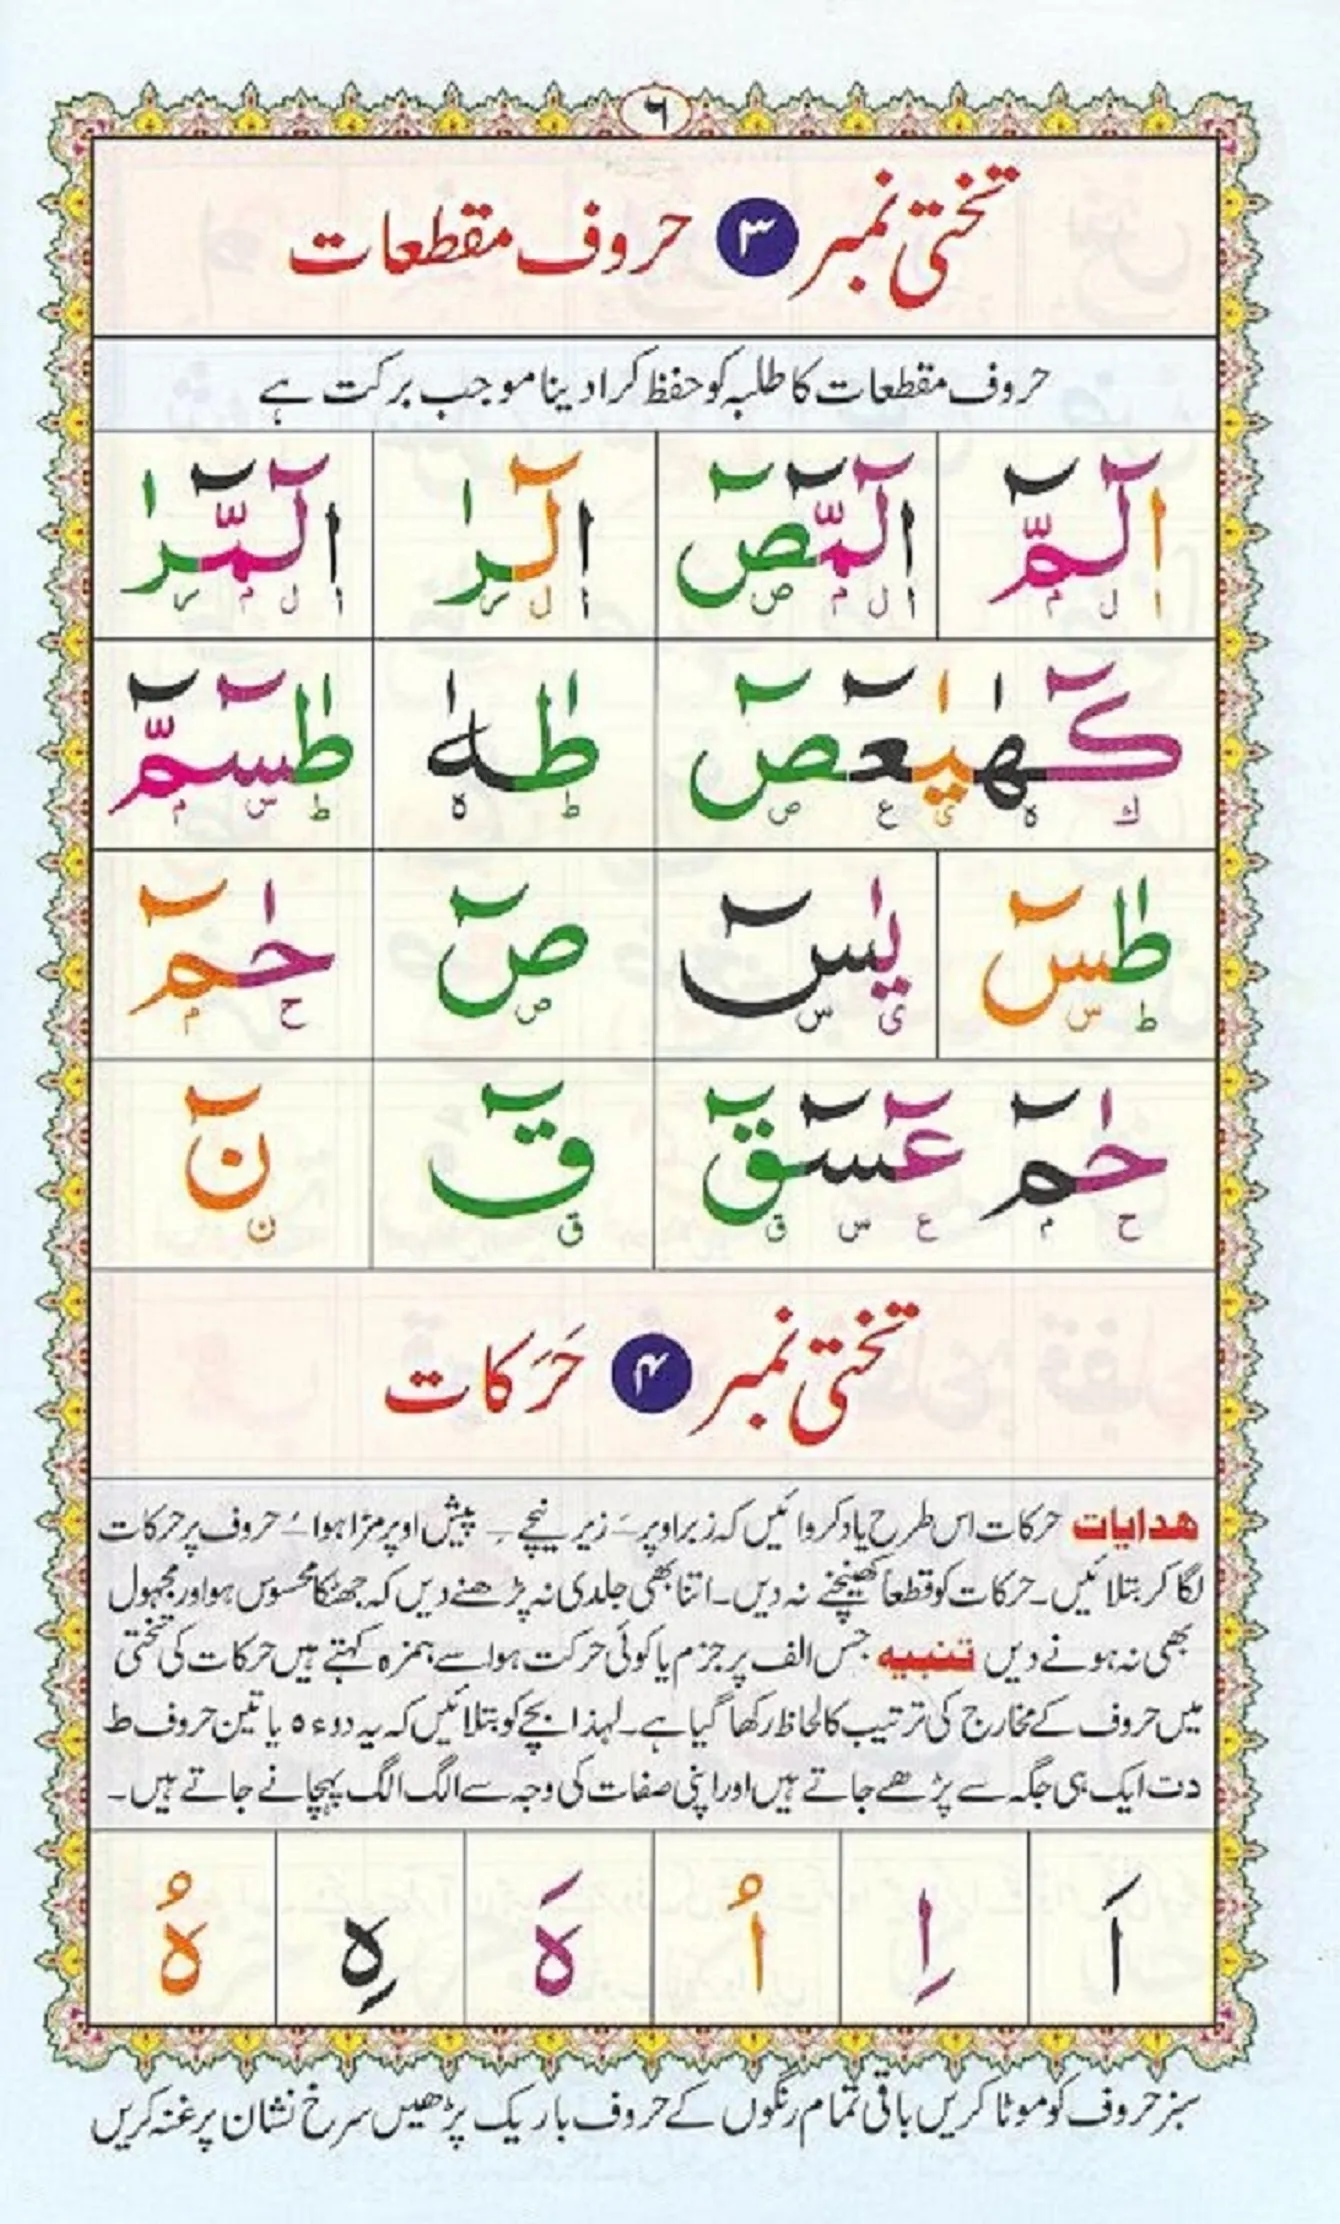 ٦
تختی نمبر ۳ حروف مقطعات
حروف مقطعات کا طلبہ کو حفظ کرا دینا موجب برکت ہے
الٓمّٓ الٓمّٓصٓ الٓرٰ الٓمّٓرٰ
ا ل م ا ل م ص ا ل ر ا ل م ر
كٓهٰيٰعٓصٓ طٰهٰ طٰسٓمّٓ
ك ه ی ع ص ط ه ط س م
طٰسٓ يٰسٓ صٓ حٰمٓ
ط س ی س ص ح م
حٰمٓ عٓسٓقٓ قٓ نٓ
ح م ع س ق ق ن
تختی نمبر ۴ حَرَکات
ھدایات حرکات اس طرح یاد کروائیں کہ زبر اوپر ـَ زیر نیچے ـِ پیش اوپر مڑا ہوا ـُ حروف پر حرکات
لگا کر بتلائیں۔ حرکات کو قطعاً کھینچنے نہ دیں۔ اتنا بھی جلدی نہ پڑھنے دیں کہ جھٹکا محسوس ہو اور مجہول
بھی نہ ہونے دیں تنبیہ جس الف پر جزم یا کوئی حرکت ہو اسے ہمزہ کہتے ہیں حرکات کی تختی
میں حروف کے مخارج کی ترتیب کا لحاظ رکھا گیا ہے۔ لہذا بچے کو بتلائیں کہ یہ دو ء ہ یا تین حروف ط
د ت ایک ہی جگہ سے پڑھے جاتے ہیں اور اپنی صفات کی وجہ سے الگ الگ پہچانے جاتے ہیں۔
اَ اِ اُ هَ هِ هُ
سبز حروف کو موٹا کریں باقی تمام رنگوں کے حروف باریک پڑھیں سرخ نشان پر غنہ کریں